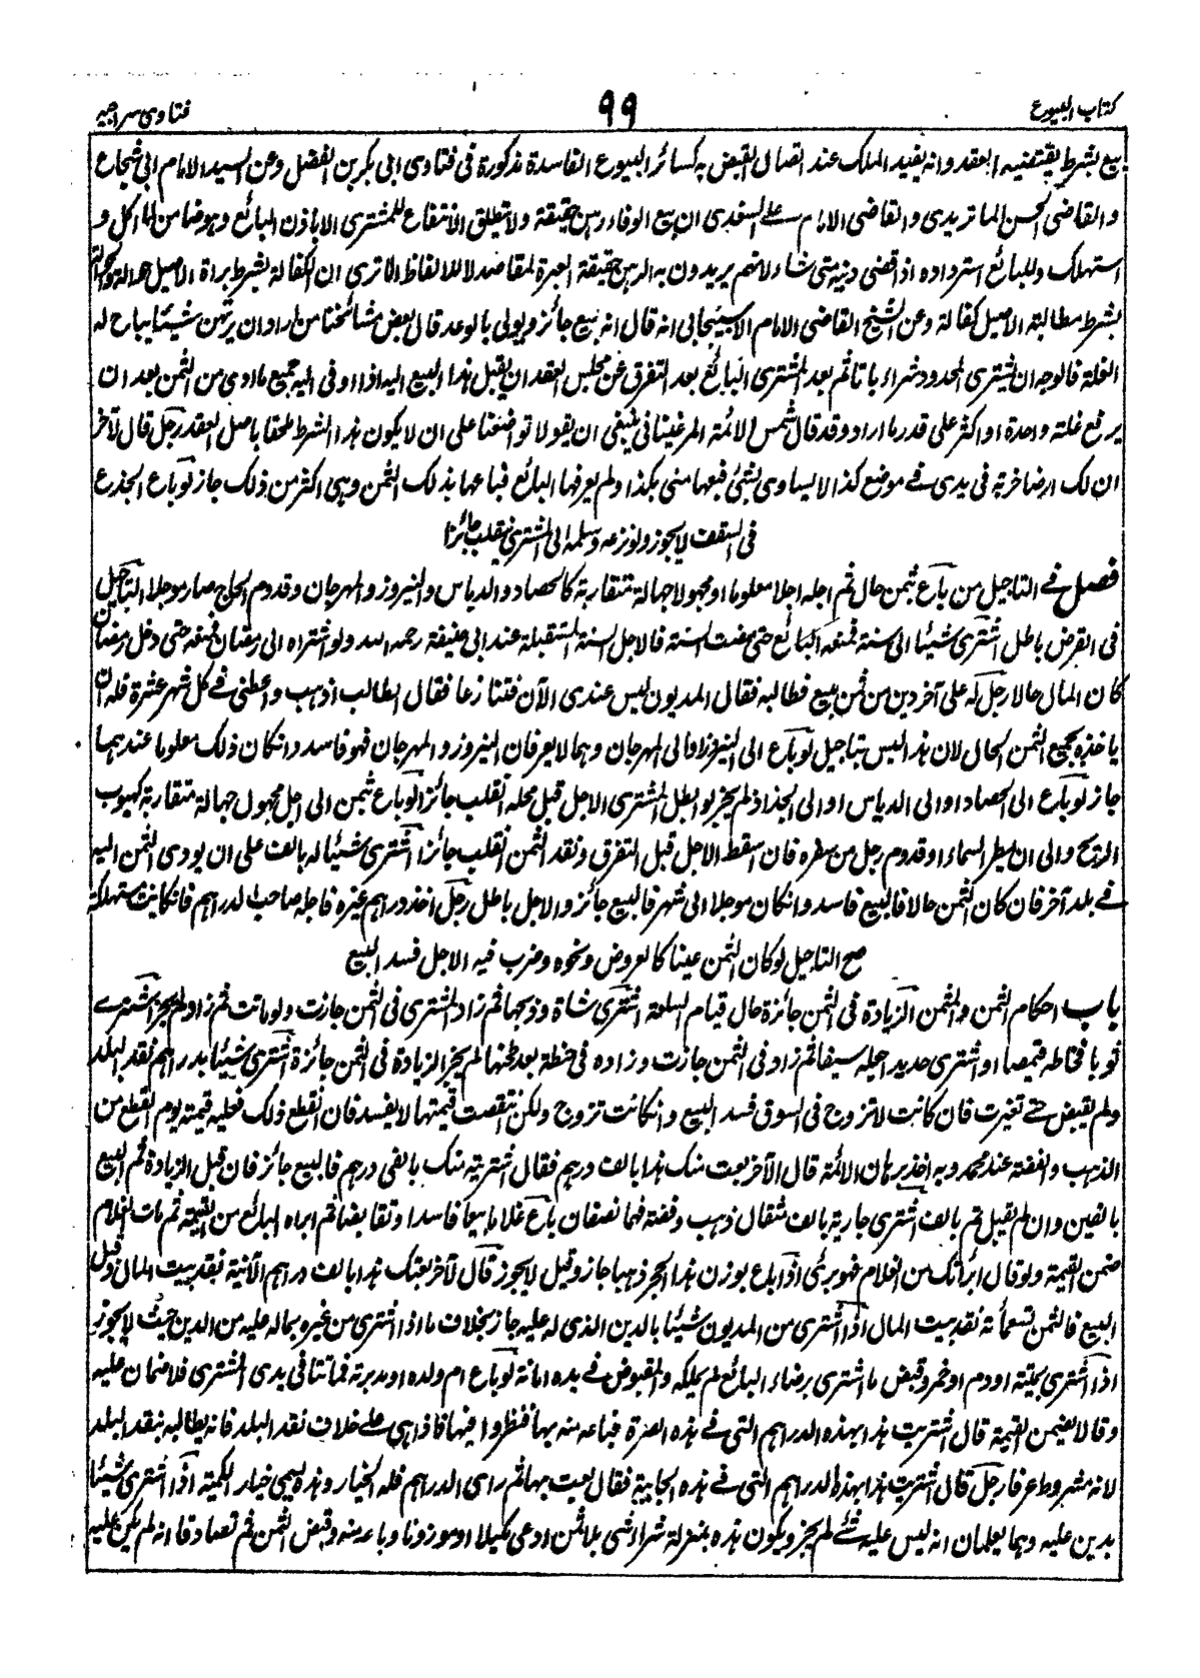 كتاب البيوع
۹۹
فتاوى سراجيه
بيع بشرط يقتضيه العقد وانه يفيد الملك عند اتصال القبض به كسائر البيوع الفاسدة مذكورة فى فتاوى ابى بكر بن الفضل وعن السيد الامام ابى شجاع
والقاضى الحسن الماتريدى والقاضى الامام على السغدى ان بيع الوفاء رهن حقيقة ولا يطلق الانتفاع للمشترى الا باذن البائع وهو ضامن لما اكل و
استهلك وللبائع استرداده اذا قضى دينه متى شاء لانهم يريدون به الرهن حقيقة العبرة لمقاصد لا للالفاظ الا ترى ان الكفالة بشرط براة الاصيل حوالة والحوالة
بشرط مطالبة الاصيل كفالة وعن الشيخ القاضى الامام الاسبيجابى انه قال انه بيع جائز ويوفى بالوعد قال بعض مشائخنا من اراد ان يرتهن شيئا يباح له
الغلة فالوجه ان يشترى المحدود شراء باتا ثم بعد المشترى البائع بعد التفرق عن مجلس العقد ان يقبل هذا البيع اليه اذا اوفى اليه جميع ما ادى من الثمن بعد ان
يرفع غلته واحدة او اكثر على قدر ما اراد وقد قال شمس الائمة المرغينانى ينبغى ان يقولا تواضعنا على ان لا يكون هذا الشرط ملحقا باصل العقد رجل قال لآخر
ان لك ارضا خربة فى يدى فى موضع كذا لا يساوى بشئ فبعها منى بكذا ولم يعرفها البائع فباعها بذلك الثمن وهى اكثر من ذلك جاز لو باع الجذع
فى السقف لا يجوز ولو نزعه وسلمه الى المشترى ينقلب جائزا
فصل فى التاجيل من باع بثمن حال ثم اجله اجلا معلوما او مجهولا جهالة متقاربة كالحصاد والدياس والنيروز والمهرجان وقدوم الحاج صار موجلا التاجيل
فى القرض باطل اشترى شيئا الى سنة فمنعه البائع حتى مضت السنة فالاجل السنة المستقبلة عند ابى حنيفة رحمه الله ولو اشتراه الى رمضان فمنعه حتى دخل رمضان
كان المال حالا رجل له على آخر دين من ثمن بيع فطالبه فقال المديون ليس عندى الآن فتنازعا فقال الطالب اذهب واعطنى فى كل شهر عشرة فله ان
ياخذه بجميع الثمن للحال لان هذا ليس بتاجيل لو باع الى النيروز او الى المهرجان وهما لا يعرفان النيروز والمهرجان فهو فاسد وان كان ذلك معلوما عندهما
جاز لو باع الى الحصاد او الى الدياس او الى الجذاذ لم يجز لو ابطل المشترى الاجل قبل محله انقلب جائزا لو باع بثمن الى اجل مجهول جهالة متقاربة كهبوب
الريح والى ان يمطر السماء او قدوم رجل من سفره فان اسقط الاجل قبل التفرق ونقد الثمن انقلب جائزا اشترى شيئا له بالف على ان يودى الثمن اليه
فى بلد آخر فان كان الثمن حالا فالبيع فاسد وان كان موجلا الى شهر فالبيع جائز والاجل باطل رجل اخذ دراهم غيره فاجله صاحب الدراهم فان كانت مستهلكة
صح التاجيل لو كان الثمن عينا كالعروض ونحوه وضرب فيه الاجل فسد البيع
باب احكام الثمن والمثمن الزيادة فى الثمن جائزة حال قيام السلعة اشترى شاة وذبحها ثم زاد المشترى فى الثمن جازت ولو ماتت ثم زاد لم يجز اشترى
ثوبا فخاطه قميصا او اشترى حديدا جعله سيفا ثم زاد فى الثمن جازت وزاده فى حنطة بعد طحنها لم يجز الزيادة فى الثمن جائزة اشترى شيئا بدراهم نقد البلد
ولم يقبض حتى تغيرت فان كانت لا تروج فى السوق فسد البيع وان كانت تروج ولكن انتقصت قيمتها لا يفسد فان انقطع ذلك فعليه قيمته يوم انقطع من
الذهب والفضة عند محمد وبه اخذ برهان الائمة قال الآخر بعت منك هذا بالف درهم فقال اشتريته منك بالفى درهم فالبيع جائز فان قبل الزيادة ثم البيع
بالفين وان لم يقبل تم بالف اشترى جارية بالف مثقال ذهب وفضة فهما نصفان باع غلاما بيعا فاسدا وتقابضا ثم ابراه البائع من القيمة ثم مات الغلام
ضمن القيمة ولو قال ابرأتك من الغلام فهو برئ اذا باع بوزن هذا الحجر ذهبا جاز وقيل لا يجوز قال لآخر بعتك هذا بالف دراهم الآنية نقد بيت المال وقبل
البيع فالثمن تسعمأته نقد بيت المال اذا اشترى من المديون شيئا بالدين الذى له عليه جاز بخلاف ما اذا اشترى من غيره بماله عليه من الدين حيث لا يجوز
اذا اشترى بميتة او دم او خمر وقبض ما اشترى برضاء البائع لم يملكه والمقبوض فى يده امانة لو باع ام ولده او مدبرته فماتتا فى يدى المشترى فلا ضمان عليه
وقالا يضمن القيمة قال اشتريت هذا بهذه الدراهم التى فى هذه الصرة فباعه منه بها فنظروا فيها فاذا هى على خلاف نقد البلد فانه يطالبه بنقد البلد
لانه مشروط عرفا رجل قال اشتريت هذا بهذه الدراهم التى فى هذه الخابية فقال بعت بها ثم راى الدراهم فله الخيار وهذه يسمى خيار الكمية اذا اشترى شيئا
بدين عليه وهما يعلمان انه ليس عليه شئ لم يجز ويكون هذه بمنزلة شراء شئ بلا ثمن ادعى مكيلا او موزونا وباعه منه وقبض الثمن ثم تصادقا انه لم يكن عليه